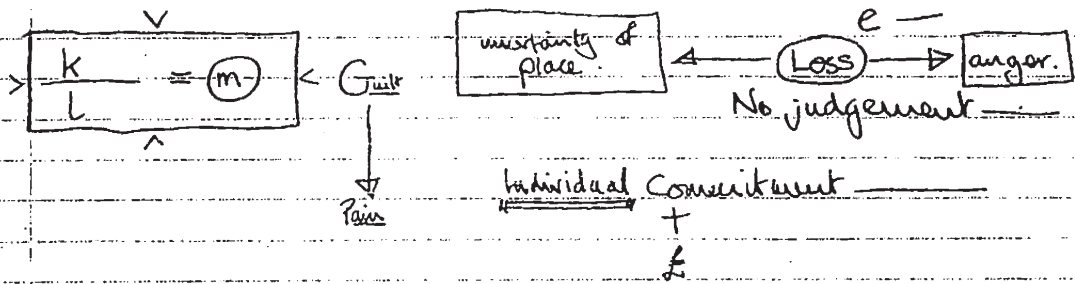 e —
k/l = m
Guilt
uncertainty of
place.
Loss
anger.
No judgement —
Pain
Individual Commitment —
+
£